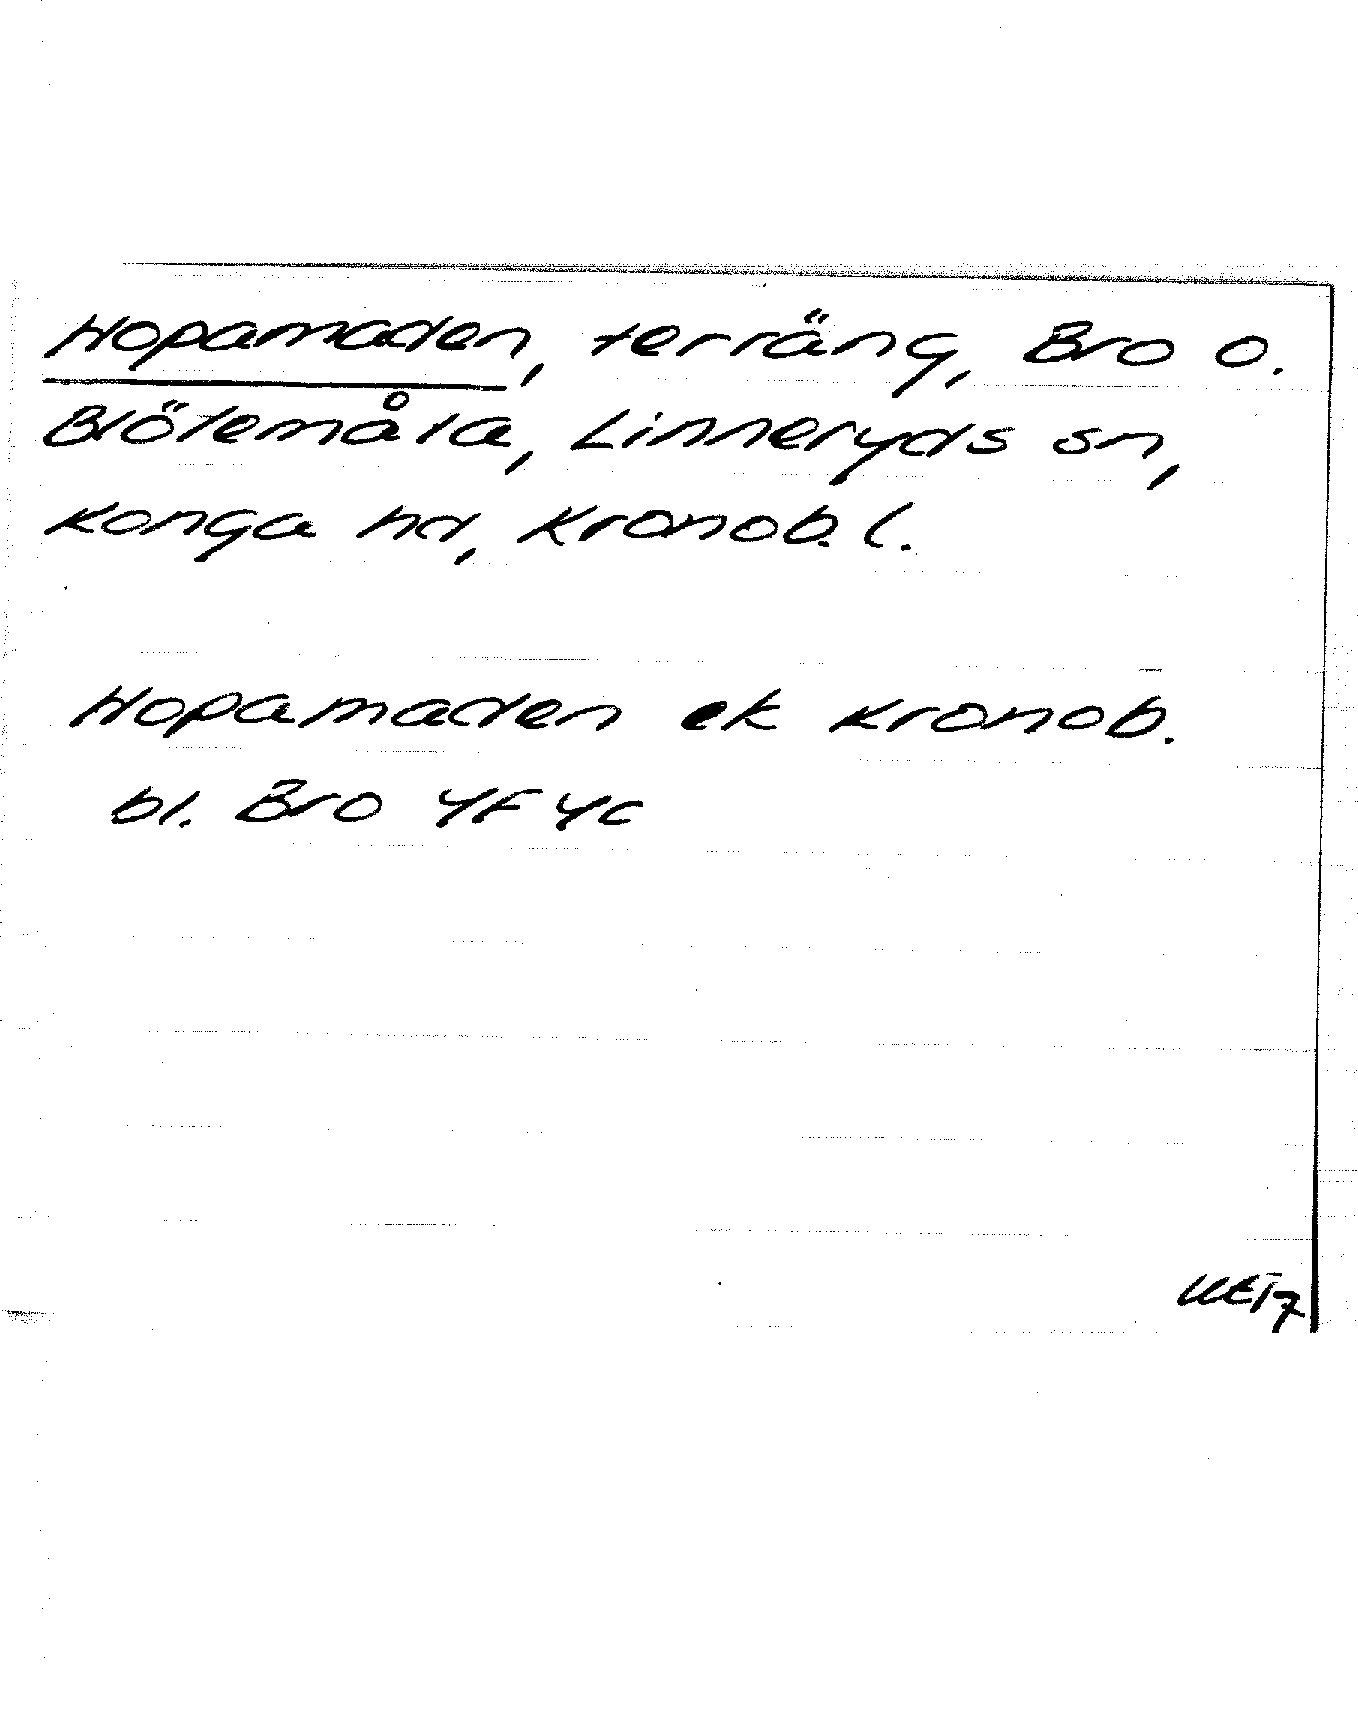 Hopamaden, terräng, Bro o.
Blötemåla, Linneryds sn,
Konga hd, Kronob. l.
Hopamaden ek Kronob.
bl. Bro 4F 4c